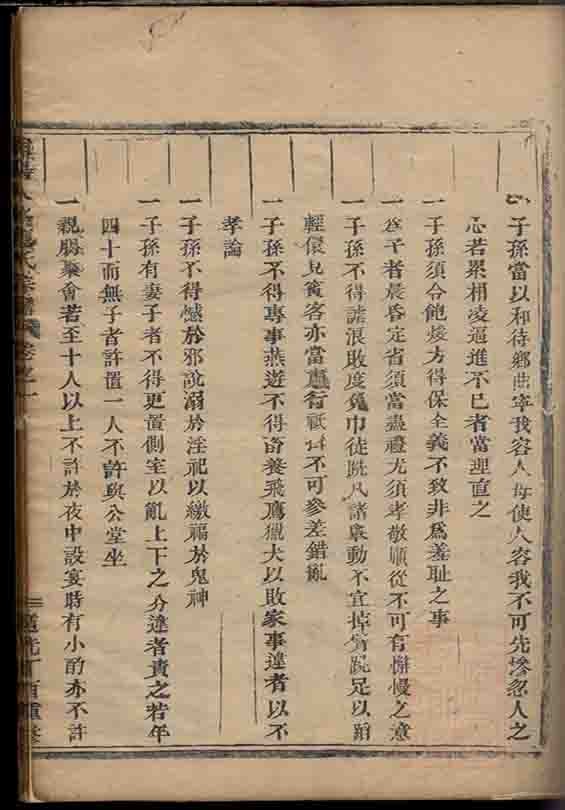 一子孫當以和待鄉曲寧我容人毋使人容我不可先懷忽人之
心若累相凌逼進不已者當理直之
一子孫須令飽煖方得保全義不致非爲羞耻之事
一爲子者晨昏定省須當盡禮尤須孝敬順從不可有懈慢之意
一子孫不得謔浪敗度免巾徒跣凡諸舉動不宜掉臂跳足以蹈
輕儇見賓客亦當肅行祗揖不可參差錯亂
一子孫不得專事燕遊不得畜養飛鷹獵犬以敗家事違者以不
孝論
一子孫不得惑於邪說溺於淫祀以繳福於鬼神
一子孫有妻子者不得更置側室以亂上下之分違者責之若年
四十而無子者許置一人不許與公堂坐
一親朋聚會若至十人以上不許於夜中設宴時有小酌亦不許
氏宗譜 卷之一
道光丁酉重修